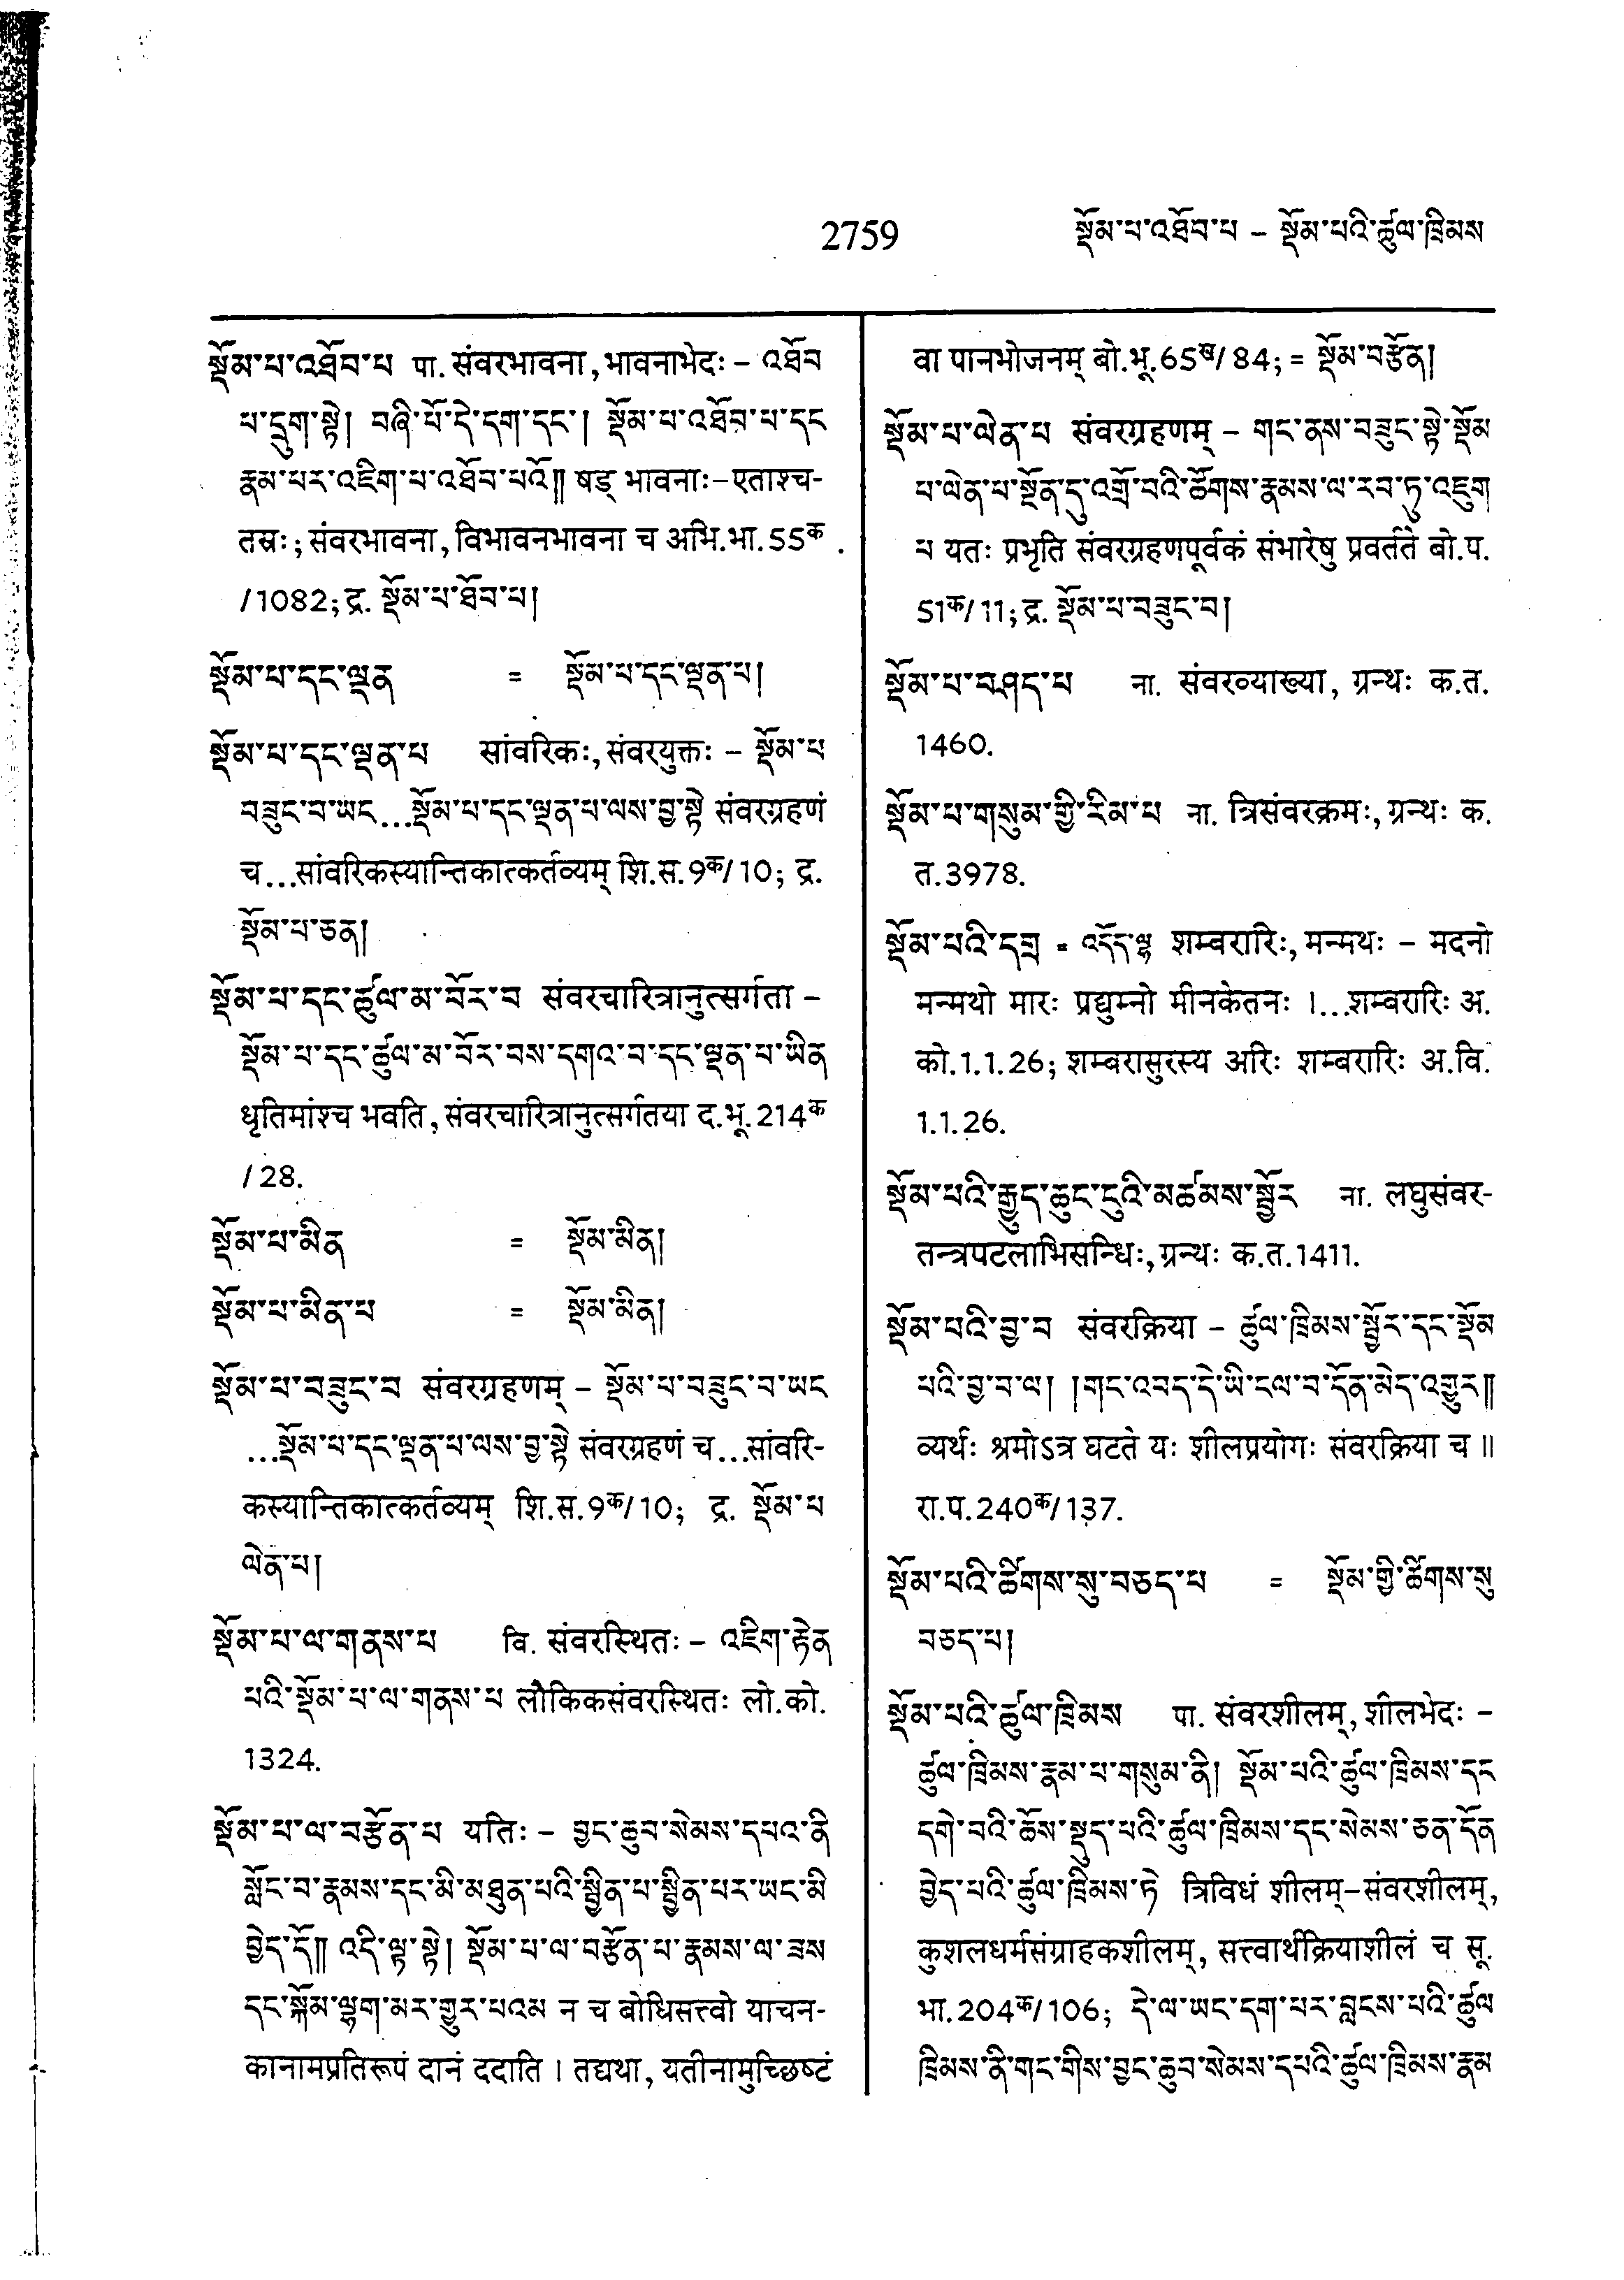 2759
སྡོམ་པ་འཐོབ་པ – སྡོམ་པའི་ཚུལ་ཁྲིམས
སྡོམ་པ་འཐོབ་པ पा. संवरभावना, भावनाभेदः – འཐོབ
པ་དྲུག་སྟེ། བཞི་པོ་དེ་དག་དང་། སྡོམ་པ་འཐོབ་པ་དང
རྣམ་པར་འཇིག་པ་འཐོབ་པའོ༎ षड् भावनाः–एताश्च-
तस्रः; संवरभावना, विभावनभावना च अभि.भा.55क
/1082; द्र. སྡོམ་པ་ཐོབ་པ།
སྡོམ་པ་དང་ལྡན = སྡོམ་པ་དང་ལྡན་པ།
སྡོམ་པ་དང་ལྡན་པ सांवरिकः, संवरयुक्तः – སྡོམ་པ
བཟུང་བ་ཡང...སྡོམ་པ་དང་ལྡན་པ་ལས་བྱ་སྟེ संवरग्रहणं
च...सांवरिकस्यान्तिकात्कर्तव्यम् शि.स.9क/10; द्र.
སྡོམ་པ་ཅན།
སྡོམ་པ་དང་ཚུལ་མ་བོར་བ संवरचारित्रानुत्सर्गता –
སྡོམ་པ་དང་ཚུལ་མ་བོར་བས་དགའ་བ་དང་ལྡན་པ་ཡིན
धृतिमांश्च भवति, संवरचारित्रानुत्सर्गतया द.भू.214क
/28.
སྡོམ་པ་མིན = སྡོམ་མིན།
སྡོམ་པ་མིན་པ = སྡོམ་མིན།
སྡོམ་པ་བཟུང་བ संवरग्रहणम् – སྡོམ་པ་བཟུང་བ་ཡང
...སྡོམ་པ་དང་ལྡན་པ་ལས་བྱ་སྟེ संवरग्रहणं च...सांवरि-
कस्यान्तिकात्कर्तव्यम् शि.स.9क/10; द्र. སྡོམ་པ
ལེན་པ།
སྡོམ་པ་ལ་གནས་པ वि. संवरस्थितः – འཇིག་རྟེན
པའི་སྡོམ་པ་ལ་གནས་པ लौकिकसंवरस्थितः लो.को.
1324.
སྡོམ་པ་ལ་བརྩོན་པ यतिः – བྱང་ཆུབ་སེམས་དཔའ་ནི
སློང་བ་རྣམས་དང་མི་མཐུན་པའི་སྦྱིན་པ་སྦྱིན་པར་ཡང་མི
བྱེད་དོ༎ འདི་ལྟ་སྟེ། སྡོམ་པ་ལ་བརྩོན་པ་རྣམས་ལ་ཟས
དང་སྐོམ་ལྷག་མར་གྱུར་པའམ न च बोधिसत्त्वो याचन-
कानामप्रतिरूपं दानं ददाति । तद्यथा, यतीनामुच्छिष्टं
वा पानभोजनम् बो.भू.65ख/84; = སྡོམ་བརྩོན།
སྡོམ་པ་ལེན་པ संवरग्रहणम् – གང་ནས་བཟུང་སྟེ་སྡོམ
པ་ལེན་པ་སྔོན་དུ་འགྲོ་བའི་ཚོགས་རྣམས་ལ་རབ་ཏུ་འཇུག
པ यतः प्रभृति संवरग्रहणपूर्वकं संभारेषु प्रवर्तते बो.प.
51क/11; द्र. སྡོམ་པ་བཟུང་བ།
སྡོམ་པ་བཤད་པ ना. संवरव्याख्या, ग्रन्थः क.त.
1460.
སྡོམ་པ་གསུམ་གྱི་རིམ་པ ना. त्रिसंवरक्रमः, ग्रन्थः क.
त.3978.
སྡོམ་པའི་དགྲ = འདོད་ལྷ शम्बरारिः, मन्मथः – मदनो
मन्मथो मारः प्रद्युम्नो मीनकेतनः ।...शम्बरारिः अ.
को.1.1.26; शम्बरासुरस्य अरिः शम्बरारिः अ.वि.
1.1.26.
སྡོམ་པའི་རྒྱུད་ཆུང་ངུའི་མཚམས་སྦྱོར ना. लघुसंवर-
तन्त्रपटलाभिसन्धिः, ग्रन्थः क.त.1411.
སྡོམ་པའི་བྱ་བ संवरक्रिया – ཚུལ་ཁྲིམས་སྦྱོར་དང་སྡོམ
པའི་བྱ་བ་ལ། །གང་འབད་དེ་ཡི་ངལ་བ་དོན་མེད་འགྱུར༎
व्यर्थः श्रमोऽत्र घटते यः शीलप्रयोगः संवरक्रिया च ॥
रा.प.240क/137.
སྡོམ་པའི་ཚིགས་སུ་བཅད་པ = སྡོམ་གྱི་ཚིགས་སུ
བཅད་པ།
སྡོམ་པའི་ཚུལ་ཁྲིམས पा. संवरशीलम्, शीलभेदः –
ཚུལ་ཁྲིམས་རྣམ་པ་གསུམ་ནི། སྡོམ་པའི་ཚུལ་ཁྲིམས་དང
དགེ་བའི་ཆོས་སྡུད་པའི་ཚུལ་ཁྲིམས་དང་སེམས་ཅན་དོན
བྱེད་པའི་ཚུལ་ཁྲིམས་ཏེ त्रिविधं शीलम्–संवरशीलम्,
कुशलधर्मसंग्राहकशीलम्, सत्त्वार्थक्रियाशीलं च सू.
भा.204क/106; དེ་ལ་ཡང་དག་པར་བླངས་པའི་ཚུལ
ཁྲིམས་ནི་གང་གིས་བྱང་ཆུབ་སེམས་དཔའི་ཚུལ་ཁྲིམས་རྣམ